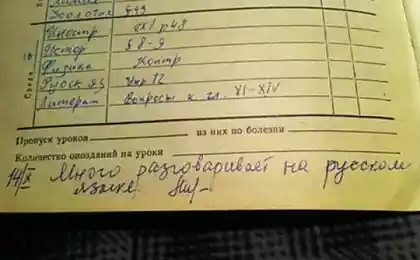 Химия
Зоология §49
Иностр ех1 р48
Истор § 8-9
Физика Контр
Русск яз Упр 12
Литерат Вопросы к гл. XI-XIV
Среда
Пропуск уроков из них по болезни
Количество опозданий на уроки
14/X Много разговаривает на русском
языке